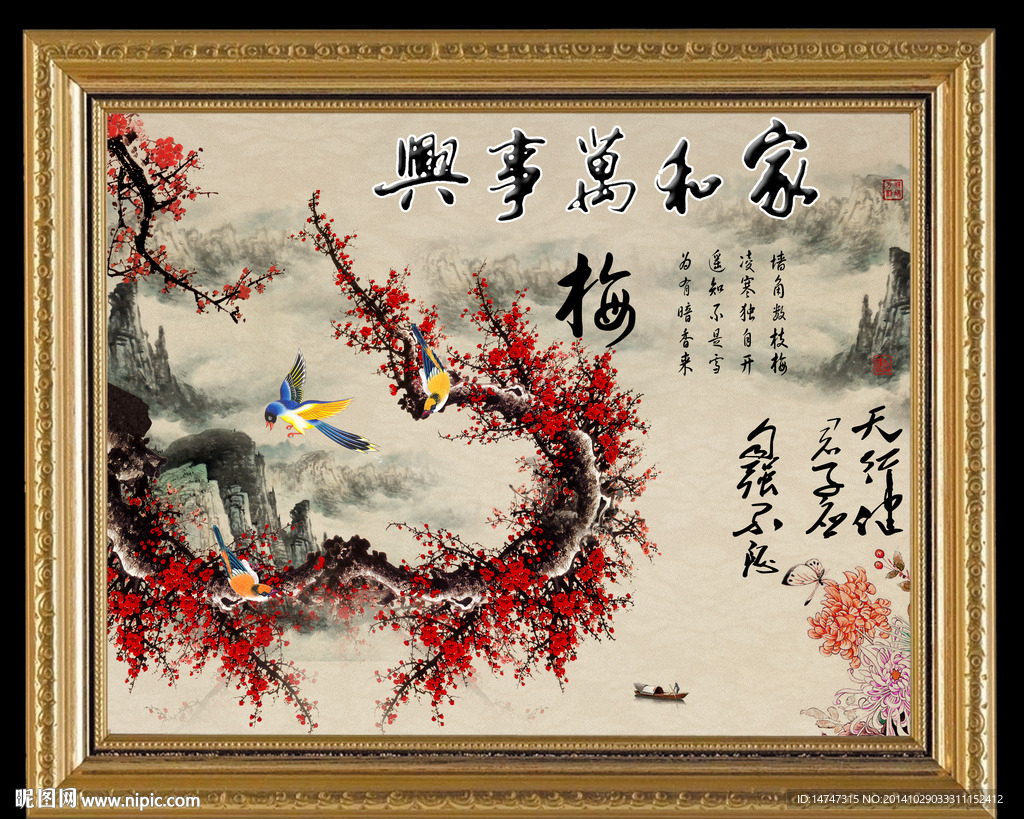 家和萬事興
梅
墙角数枝梅
凌寒独自开
遥知不是雪
为有暗香来
天行健
君子应
自强不息
昵图网 www.nipic.com
ID:14747315 NO:20141029033311152412